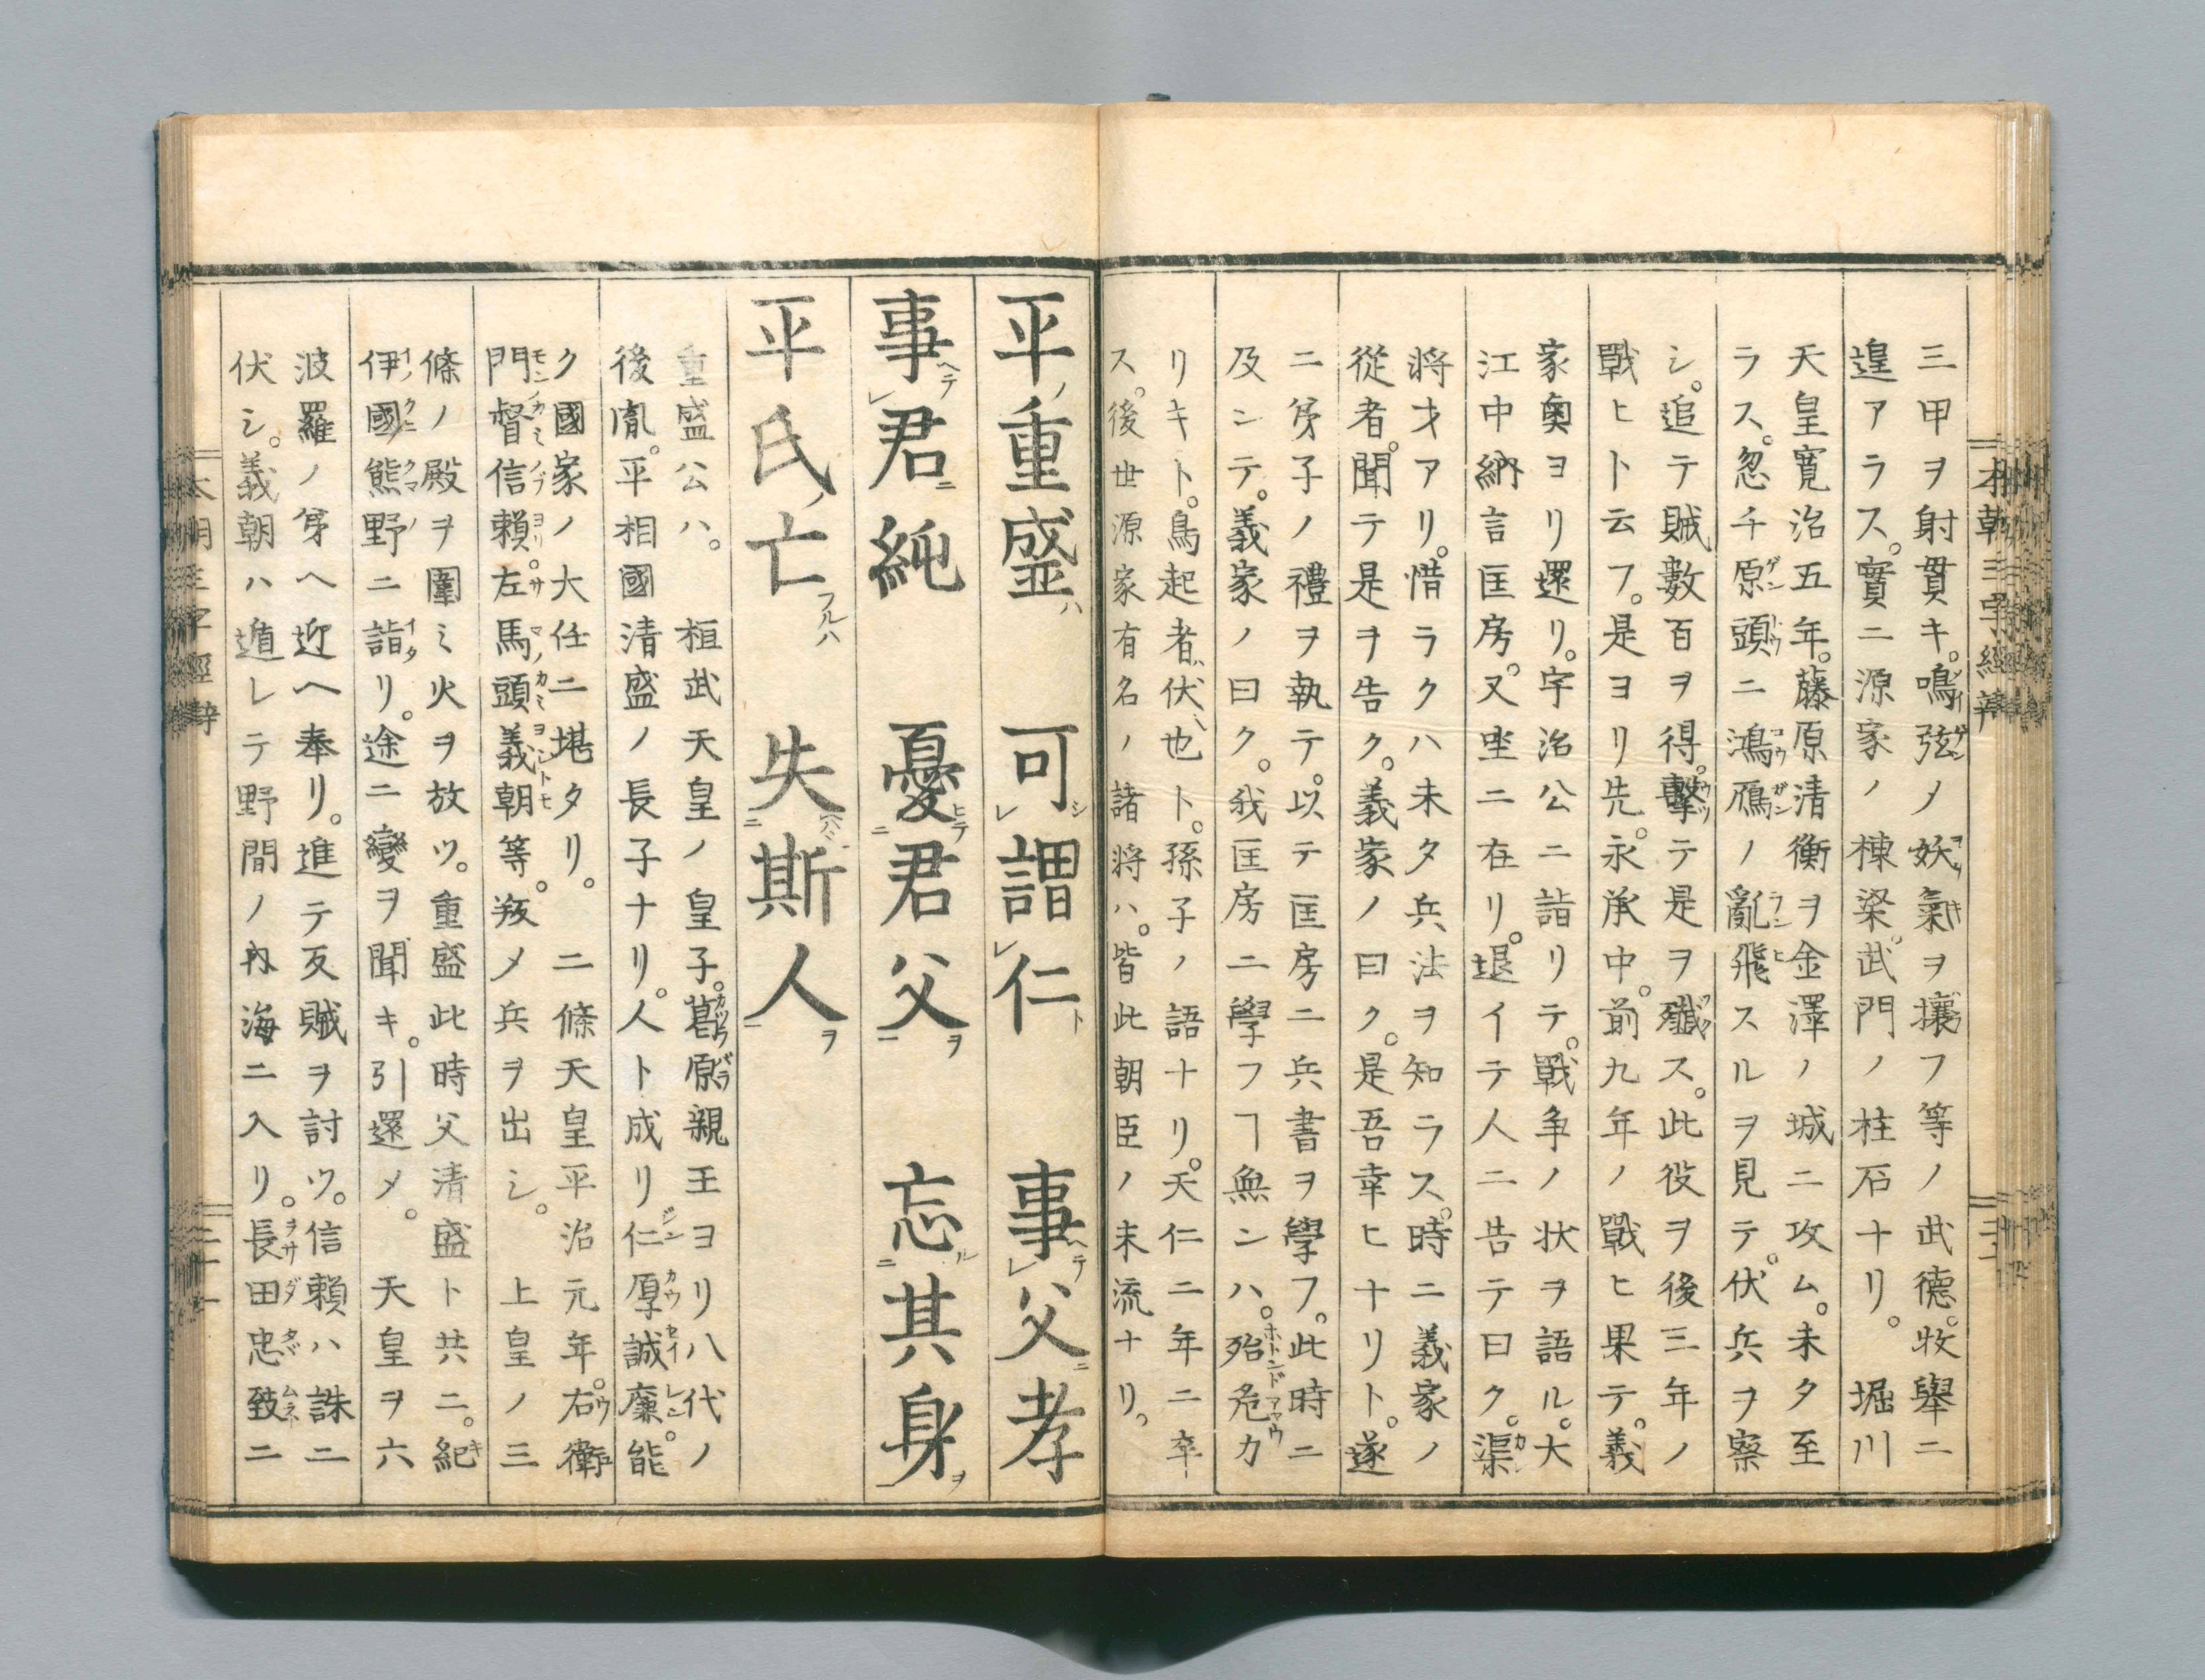 三甲ヲ射貫キ。鳴弦ノ妖氣ヲ攘フ等ノ武德。牧舉ニ
遑アラス。實ニ源家ノ棟梁。武門ノ柱石ナリ。　堀川
天皇寛治五年。藤原清衡ヲ金澤ノ城ニ攻ム。未タ至
ラス。忽チ原頭ニ鴻鴈ノ亂飛スルヲ見テ。伏兵ヲ察
シ。追テ賊數百ヲ得。擊テ是ヲ殲ス。此役ヲ後三年ノ
戰ヒト云フ。是ヨリ先。永承中。前九年ノ戰ヒ果テ。義
家奧ヨリ還リ。宇治公ニ詣リテ。戰争ノ状ヲ語ル。大
江中納言匡房。又坐ニ在リ。退イテ人ニ告テ曰ク。渠
將才アリ。惜ラクハ未タ兵法ヲ知ラス。時ニ義家ノ
從者。聞テ是ヲ告ク。義家ノ曰ク。是吾幸ヒナリト。遂
ニ弟子ノ禮ヲ執テ。以テ匡房ニ兵書ヲ學フ。此時ニ
及ンテ。義家ノ曰ク。我匡房ニ學フヿ無ンハ。殆危カ
リキト。鳥起者、伏也ト。孫子ノ語ナリ。天仁二年ニ卒
ス。後世源家有名ノ諸將ハ。皆此朝臣ノ末流ナリ。
平重盛　可謂仁　事父孝
事君純　憂君父　忘其身
平氏亡　失斯人
重盛公ハ。　桓武天皇ノ皇子。葛原親王ヨリ八代ノ
後胤。平相國清盛ノ長子ナリ。人ト成リ仁厚誠廉。能
ク國家ノ大任ニ堪タリ。　二條天皇平治元年。右衛
門督信賴。左馬頭義朝等。叛メ兵ヲ出シ。　上皇ノ三
條ノ殿ヲ圍ミ火ヲ放ツ。重盛此時父清盛ト共ニ。紀
伊國熊野ニ詣リ。途ニ變ヲ聞キ。引還メ。　天皇ヲ六
波羅ノ第ヘ迎ヘ奉リ。進テ反賊ヲ討ツ。信賴ハ誅ニ
伏シ。義朝ハ遁レテ野間ノ内海ニ入リ。長田忠致ニ